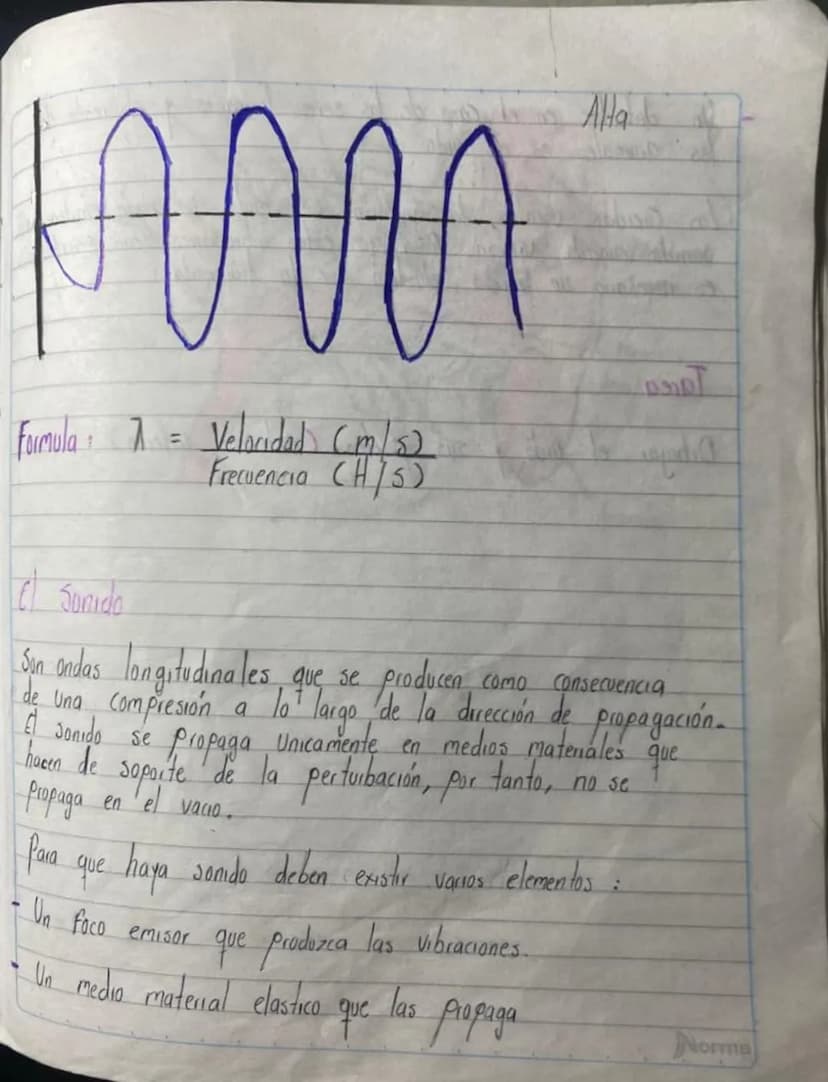 Alta
Formula: λ = Velocidad (m/s)
Frecuencia (H/s)
El Sonido
Son ondas longitudinales que se producen como consecuencia
de una compresión a lo largo de la dirección de propagación.
El sonido se propaga unicamente en medios materiales que
hacen de soporte de la perturbación, por tanto, no se
propaga en el vacio.
Para que haya sonido deben existir varios elementos :
- Un foco emisor que produzca las vibraciones.
- Un medio material elastico que las propaga
Norma